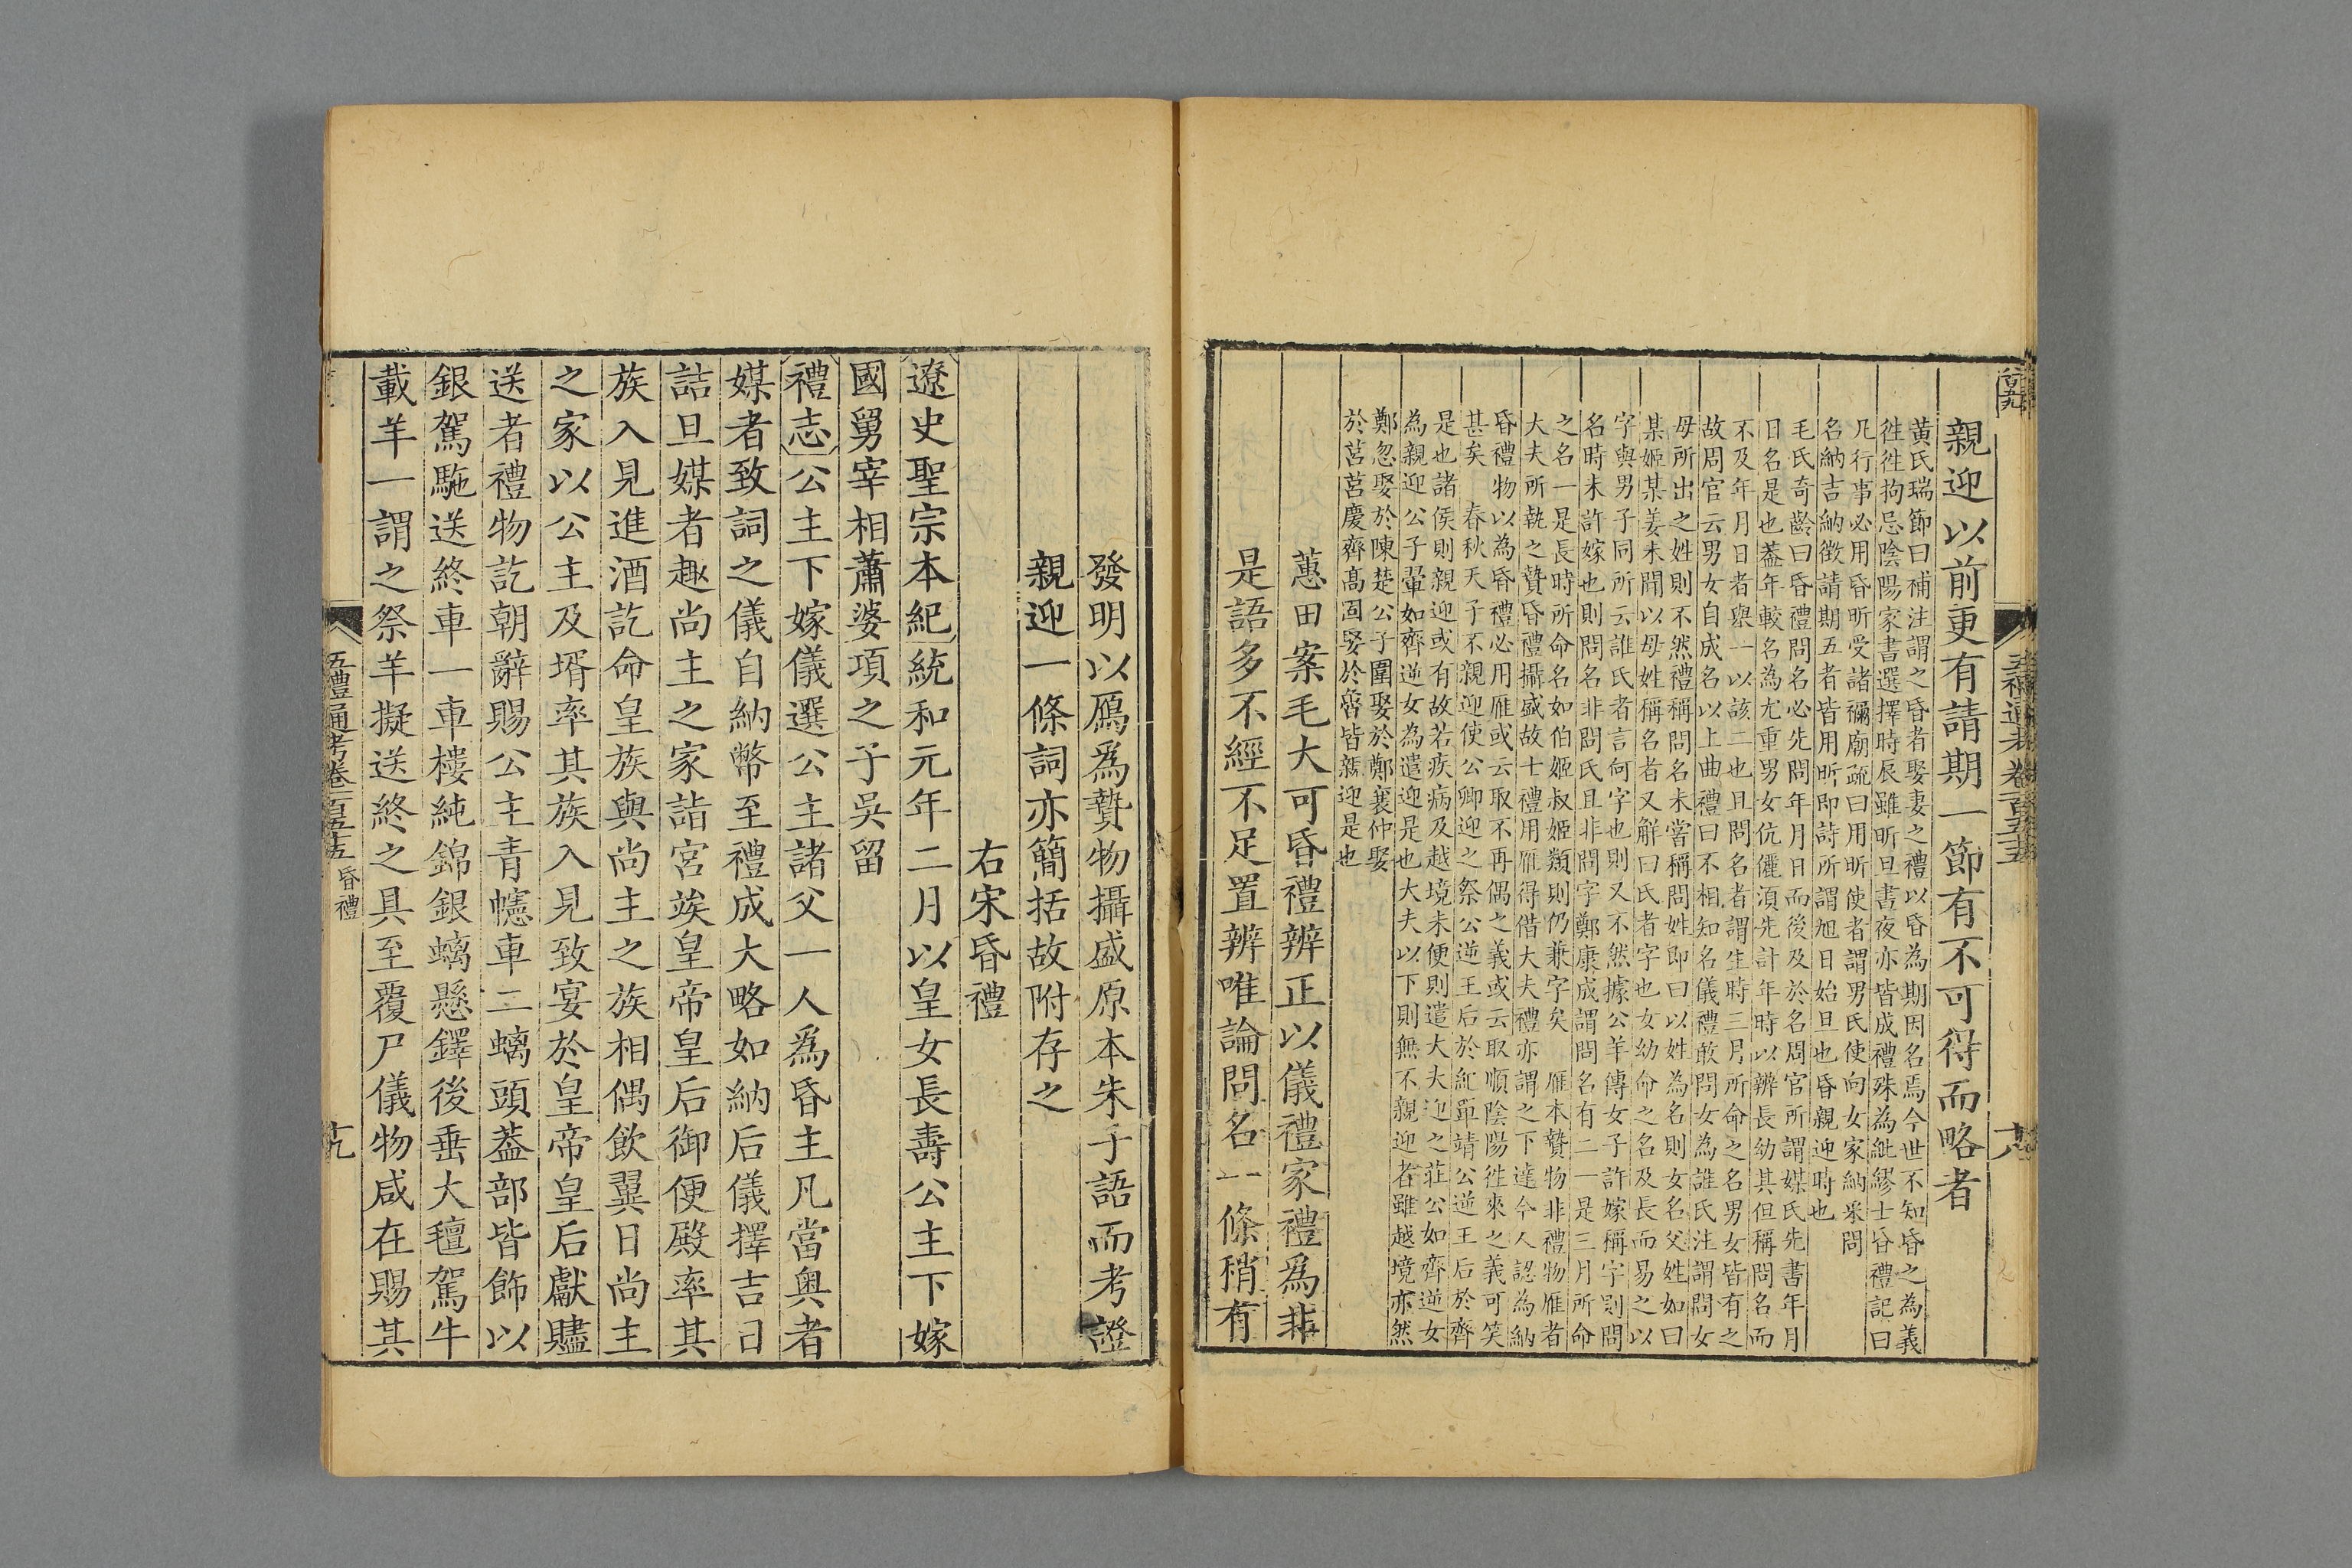 五禮通考卷一百五十五
親迎以前更有請期一節有不可得而略者
黃氏瑞節曰補注謂之昏者娶妻之禮以昏為期因名焉今世不知昏之為義
徃徃拘忌陰陽家書選擇時辰雖昕旦晝夜亦皆成禮殊為紕繆士昏禮記曰
凡行事必用昏昕受諸禰廟疏曰用昕使者謂男氏使向女家納采問
名納吉納徵請期五者皆用昕即詩所謂旭日始旦也昏親迎時也
毛氏奇齡曰昏禮問名必先問年月日而後及於名周官所謂媒氏先書年月
日名是也葢年較名為尤重男女伉儷湏先計年時以辨長幼其但稱問名而
不及年月日者舉一以該二也且問名者謂生時三月所命之名男女皆有之
故周官云男女自成名以上曲禮曰不相知名儀禮敢問女為誰氏注謂問女
母所出之姓則不然禮稱問名未嘗稱問姓即曰以姓為名則女名父姓如曰
某姬某姜未聞以母姓稱名者又解曰氏者字也女幼命之名及長而易之以
字與男子同所云誰氏者言何字也則又不然據公羊傳女子許嫁稱字則問
名時未許嫁也則問名非問氏且非問字鄭康成謂問名有二一是三月所命
之名一是長時所命名如伯姬叔姬類則仍兼字矣 雁本贄物非禮物雁者
大夫所執之贄昏禮攝盛故士禮用雁得偕大夫禮亦謂之下達今人認為納
昏禮物以為昏禮必用雁或云取不再偶之義或云取順陰陽徃來之義可笑
甚矣 春秋天子不親迎使公卿迎之祭公逆王后於紀單靖公逆王后於齊
是也諸侯則親迎或有故若疾病及越境未便則遣大夫迎之莊公如齊逆女
為親迎公子翬如齊逆女為遣迎是也大夫以下則無不親迎者雖越境亦然
鄭忽娶於陳楚公子圍娶於鄭襄仲娶
於莒莒慶齊髙固娶於魯皆親迎是也
蕙田案毛大可昏禮辨正以儀禮家禮爲非
是語多不經不足置辨唯論問名一條稍有
發明以鴈爲贄物攝盛原本朱子語而考證
親迎一條詞亦簡括故附存之
右宋昏禮
遼史聖宗本紀統和元年二月以皇女長壽公主下嫁
國舅宰相蕭婆項之子吳留
禮志公主下嫁儀選公主諸父一人爲昏主凡當奧者
媒者致詞之儀自納幣至禮成大略如納后儀擇吉日
詰旦媒者趣尚主之家詣宮竢皇帝皇后御便殿率其
族入見進酒訖命皇族與尚主之族相偶飲翼日尚主
之家以公主及壻率其族入見致宴於皇帝皇后獻贐
送者禮物訖朝辭賜公主青幰車二螭頭葢部皆飾以
銀駕駞送終車一車樓純錦銀螭懸鐸後垂大氊駕牛
載羊一謂之祭羊擬送終之具至覆尸儀物咸在賜其
五禮通考卷一百五十五 昏禮